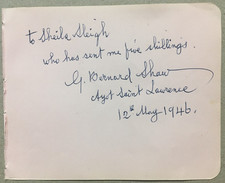 To Sheila Sleigh
who has sent me five shillings.
G. Bernard Shaw
Ayot Saint Lawrence
12th May 1946.